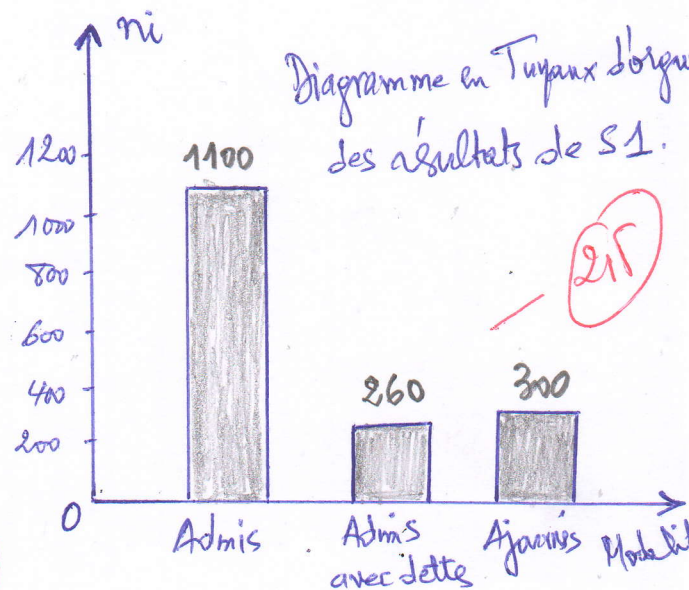 ni
Diagramme en Tuyaux d'orgue
des résultats de S1.
1200
1100
1000
800
2,5
600
400
260
300
200
0
Admis
Admis
avec dettes
Ajournés
Modalit